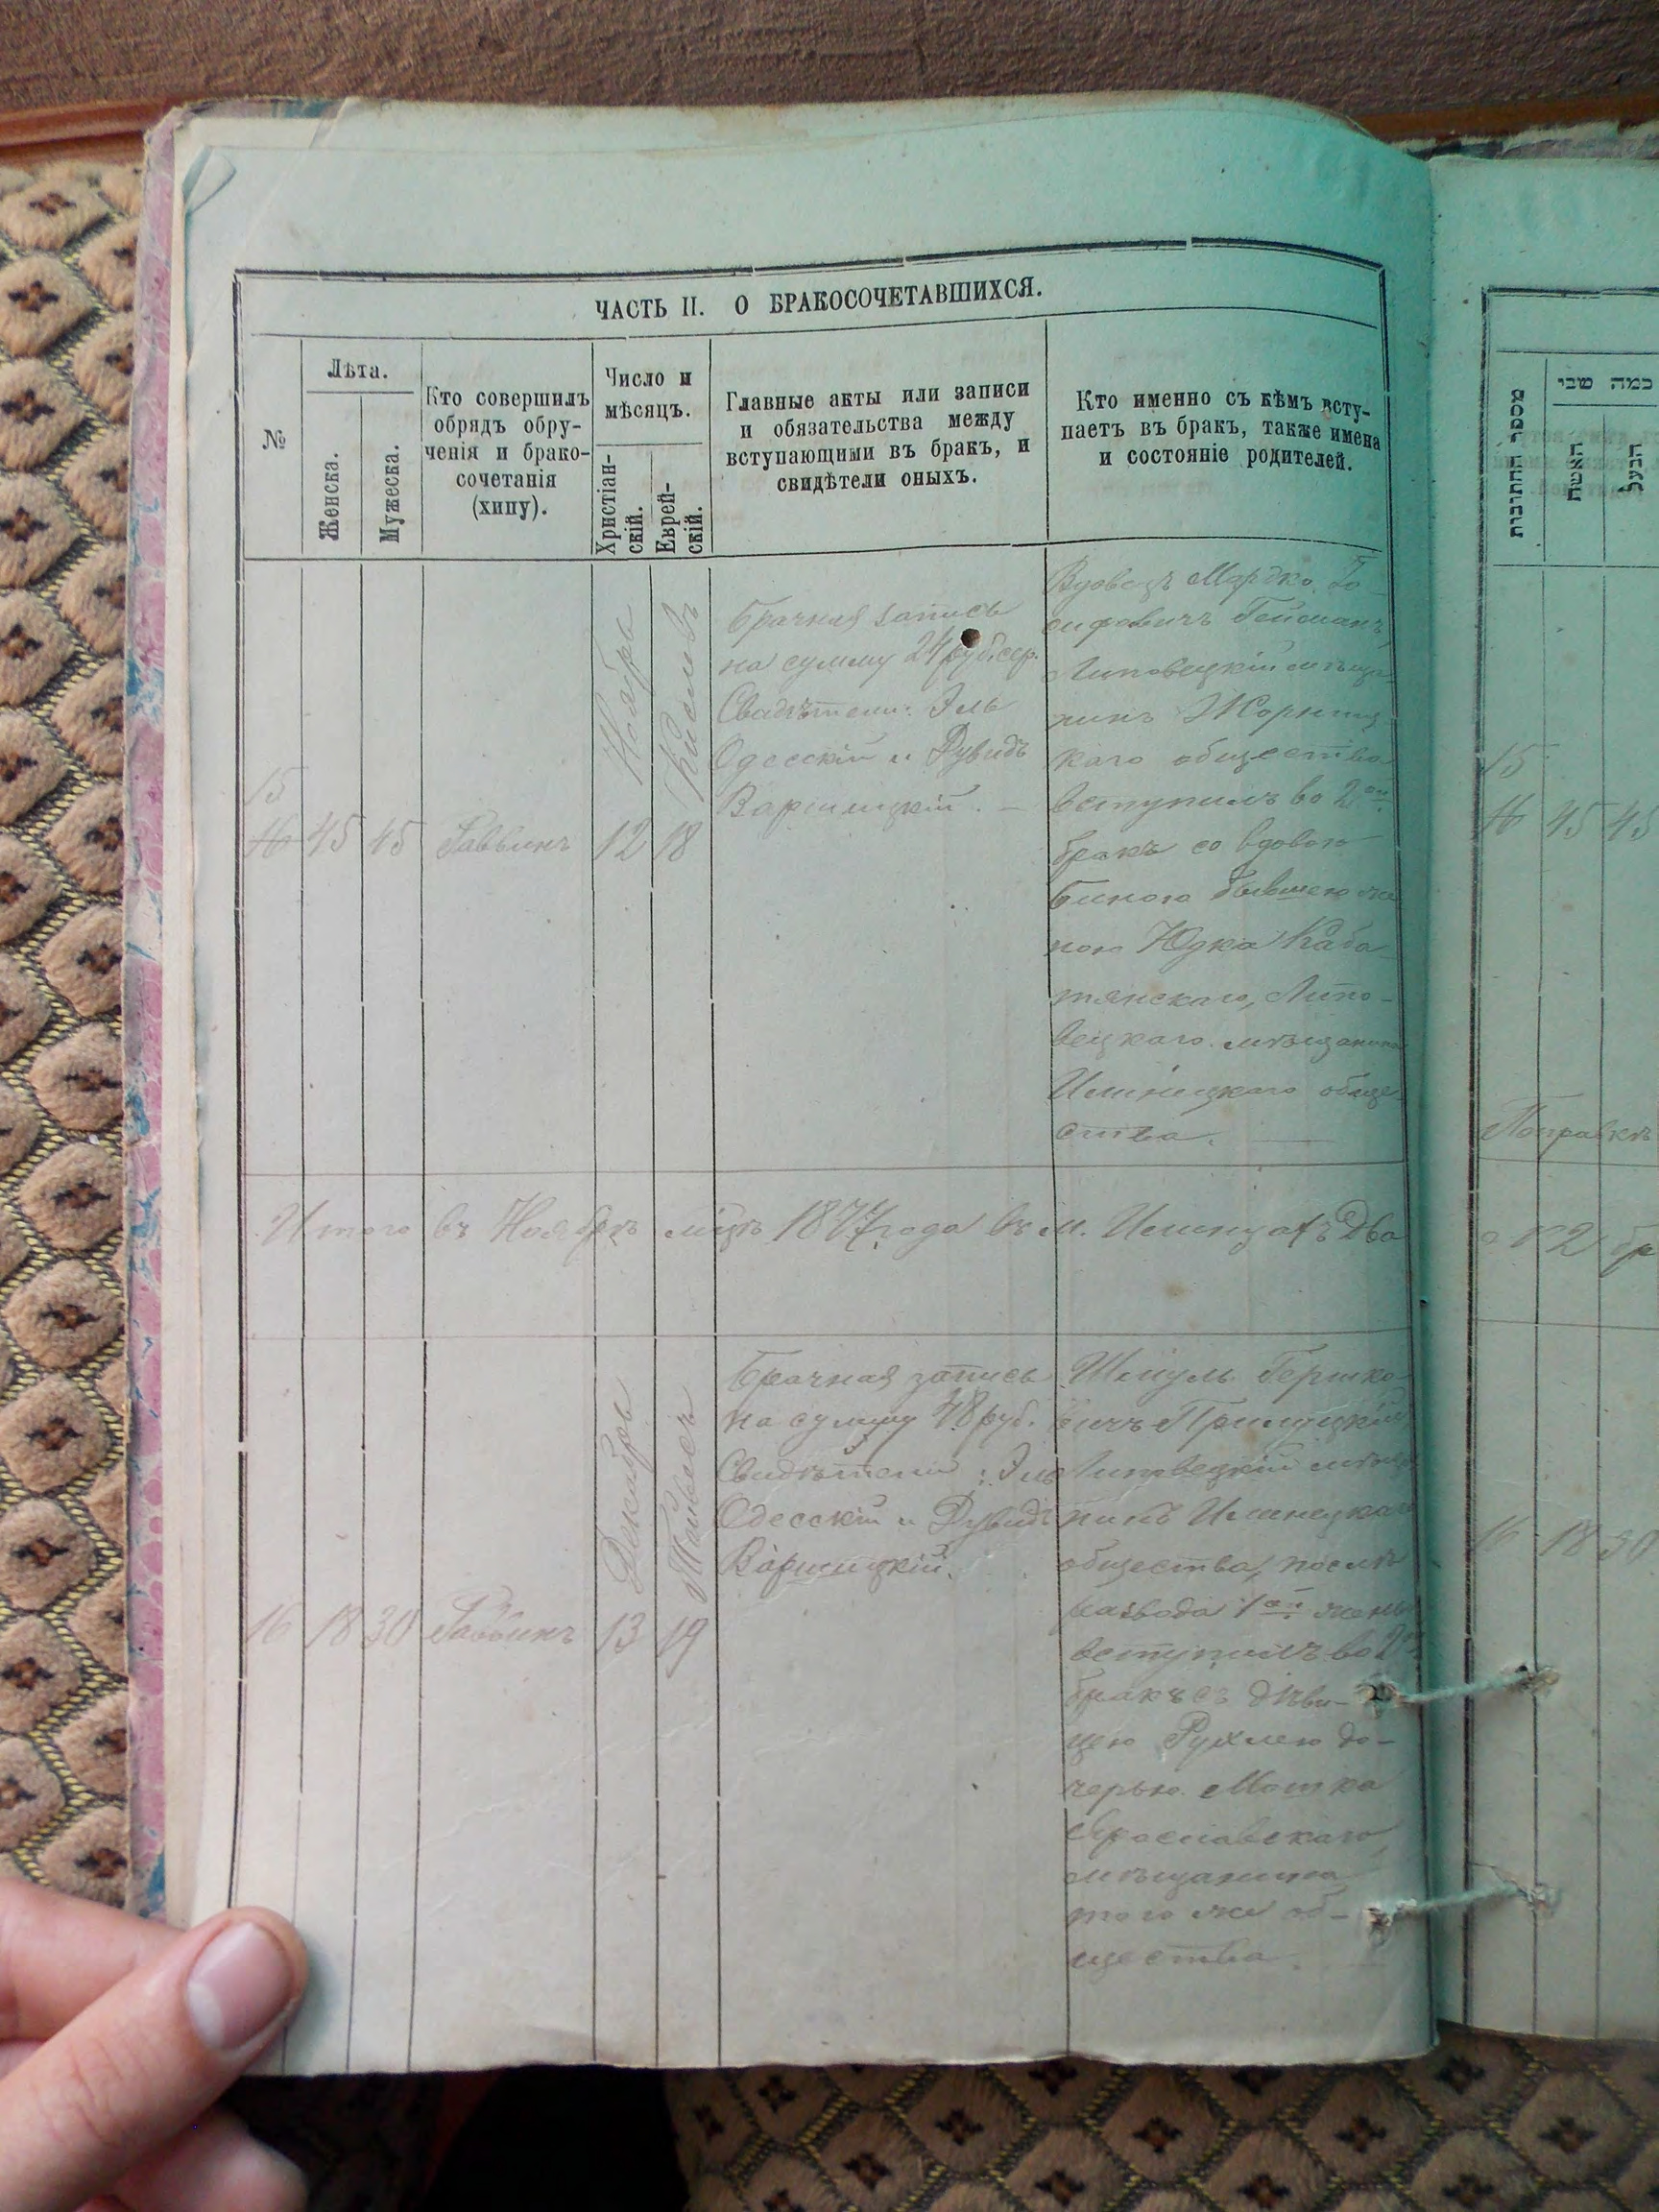 ЧАСТЬ II. О БРАКОСОЧЕТАВШИХСЯ.
№
Лѣта.
Женска.
Мужеска.
Кто совершилъ
обрядъ обру-
ченія и брако-
сочетанія
(хипу).
Число и
мѣсяцъ.
Христіан-
скій.
Еврей-
скій.
Главные акты или записи
и обязательства между
вступающими въ бракъ, и
свидѣтели оныхъ.
Кто именно съ кѣмъ всту-
паетъ въ бракъ, также имена
и состояніе родителей.
15
16
45
45
Раввинъ
Ноябрь
12
Кислевъ
18
Брачная запись
на сумму 24 руб. сер.
Свидѣтели: Эль
Одесскій и Дувидъ
Варшицкій. —
Вдовецъ Мордко Іо-
сифовичъ Гейсманъ
Липовецкій мѣща-
нинъ
каго общества
вступилъ во 2ой
бракъ со вдовою
Биною бывшею же
ною Юдка Каба-
тянскаго, Липо-
вецкаго мѣщанина
Илинецкаго обще-
ства. —
Итого въ Ноябрѣ мѣцѣ 1877 года въ м. Илинцахъ Два
16
18
30
Раввинъ
Декабрь
13
Тейвесъ
19
Брачная запись
на сумму 48 руб.
Свидѣтели: Эль
Одесскій и Дувидъ
Варшицкій.
Шмуль Гершко-
вичъ Прилуцкій
Липовецкій мѣща-
нинъ Илинецкаго
общества, послѣ
развода 1ой жены
вступилъ во 2ой
бракъ съ дѣви-
цею Рухлею до-
черью Мошка
Ярославскаго,
мѣщанина
того же об-
щества. —
מספר החתונות
כמה שני
האשה
הבעל
15
16
45
45
2 бр
16
18
30